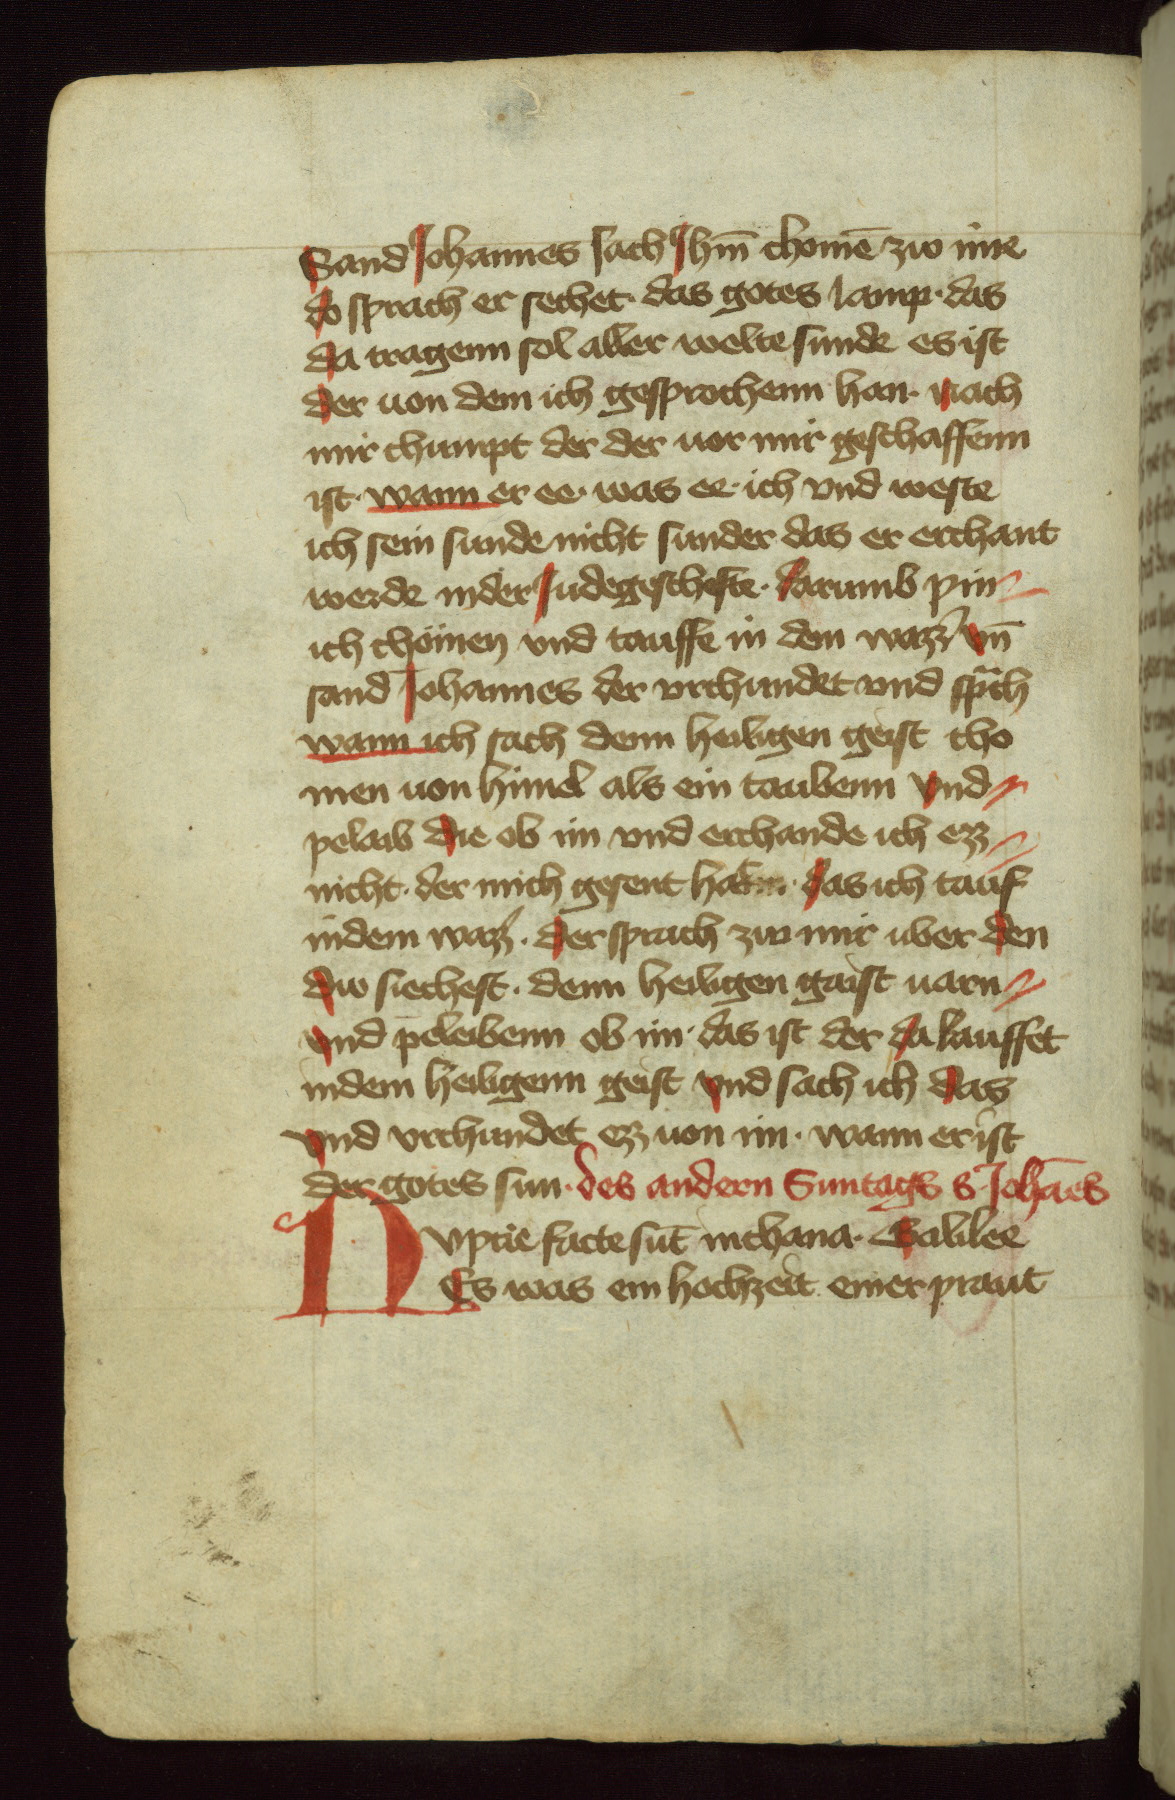 Sand Johannes sach Jhm̄ chomē zwo ime
do sprach er sechet· das gotes lamp· das
da tragenn sol aller welte sunde es ist
der uon dem ich gesprochenn han· nach
mir chumpt der der uor mir geschaffenn
ist· wann er ee· was ee· ich vnd weste
ich sein sunde nicht sunder das er erchant
werde in der Judegeschefte· darumb pin
ich chömen vnd tauffe in dem wazz̕ vn̄
sand Johannes der vrchundet vnd sprch
wann ich sach denn heiligen geist cho
men uon himel als ein taubenn vnd
pelaib die ob im vnd erchande ich ezz
nicht· der mich gesent hat· das ich tauf
in dem wazz̕· der sprach zw mir uber den
dw siechest· denn heiligen gaist uarn
vnd peleibenn ob im· das ist der da tauffet
in dem heiligenn geist vnd sach ich das
vnd vrchundet ezz uon im· wann er ist
der gotes sun· des andern Suntags s Johāes
Nvptie facte sūt in chana· Galilee
Es was ein hochzeit einer praut